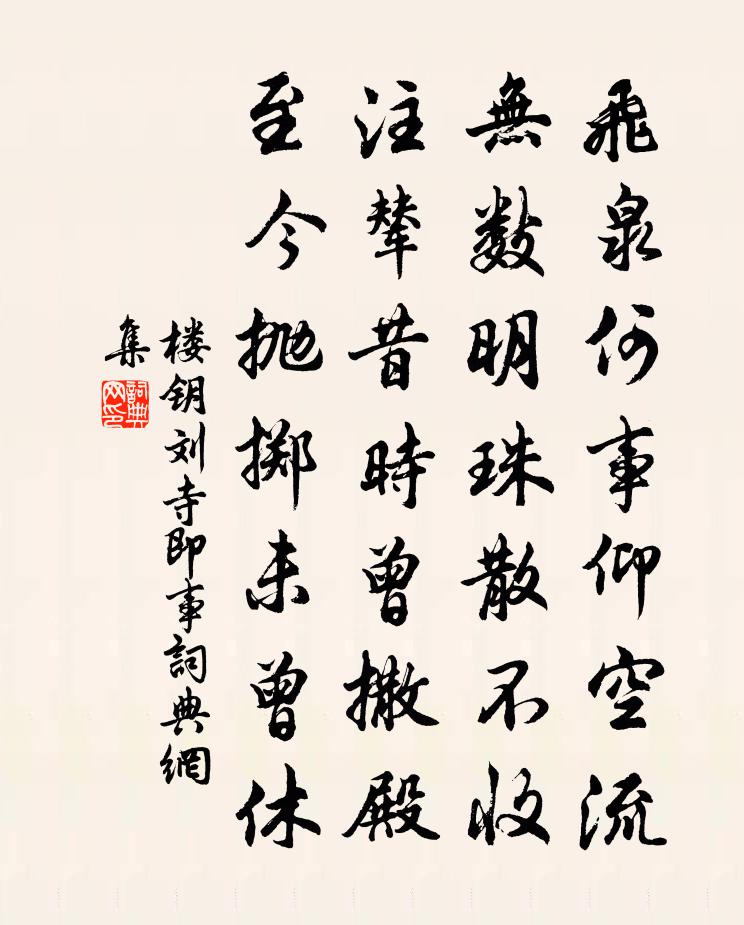 飛泉何事仰空流
無數明珠散不收
注輦昔時曾撒殿
至今抛擲未曾休
楼钥刘寺即事詞典網
集
詞典網印